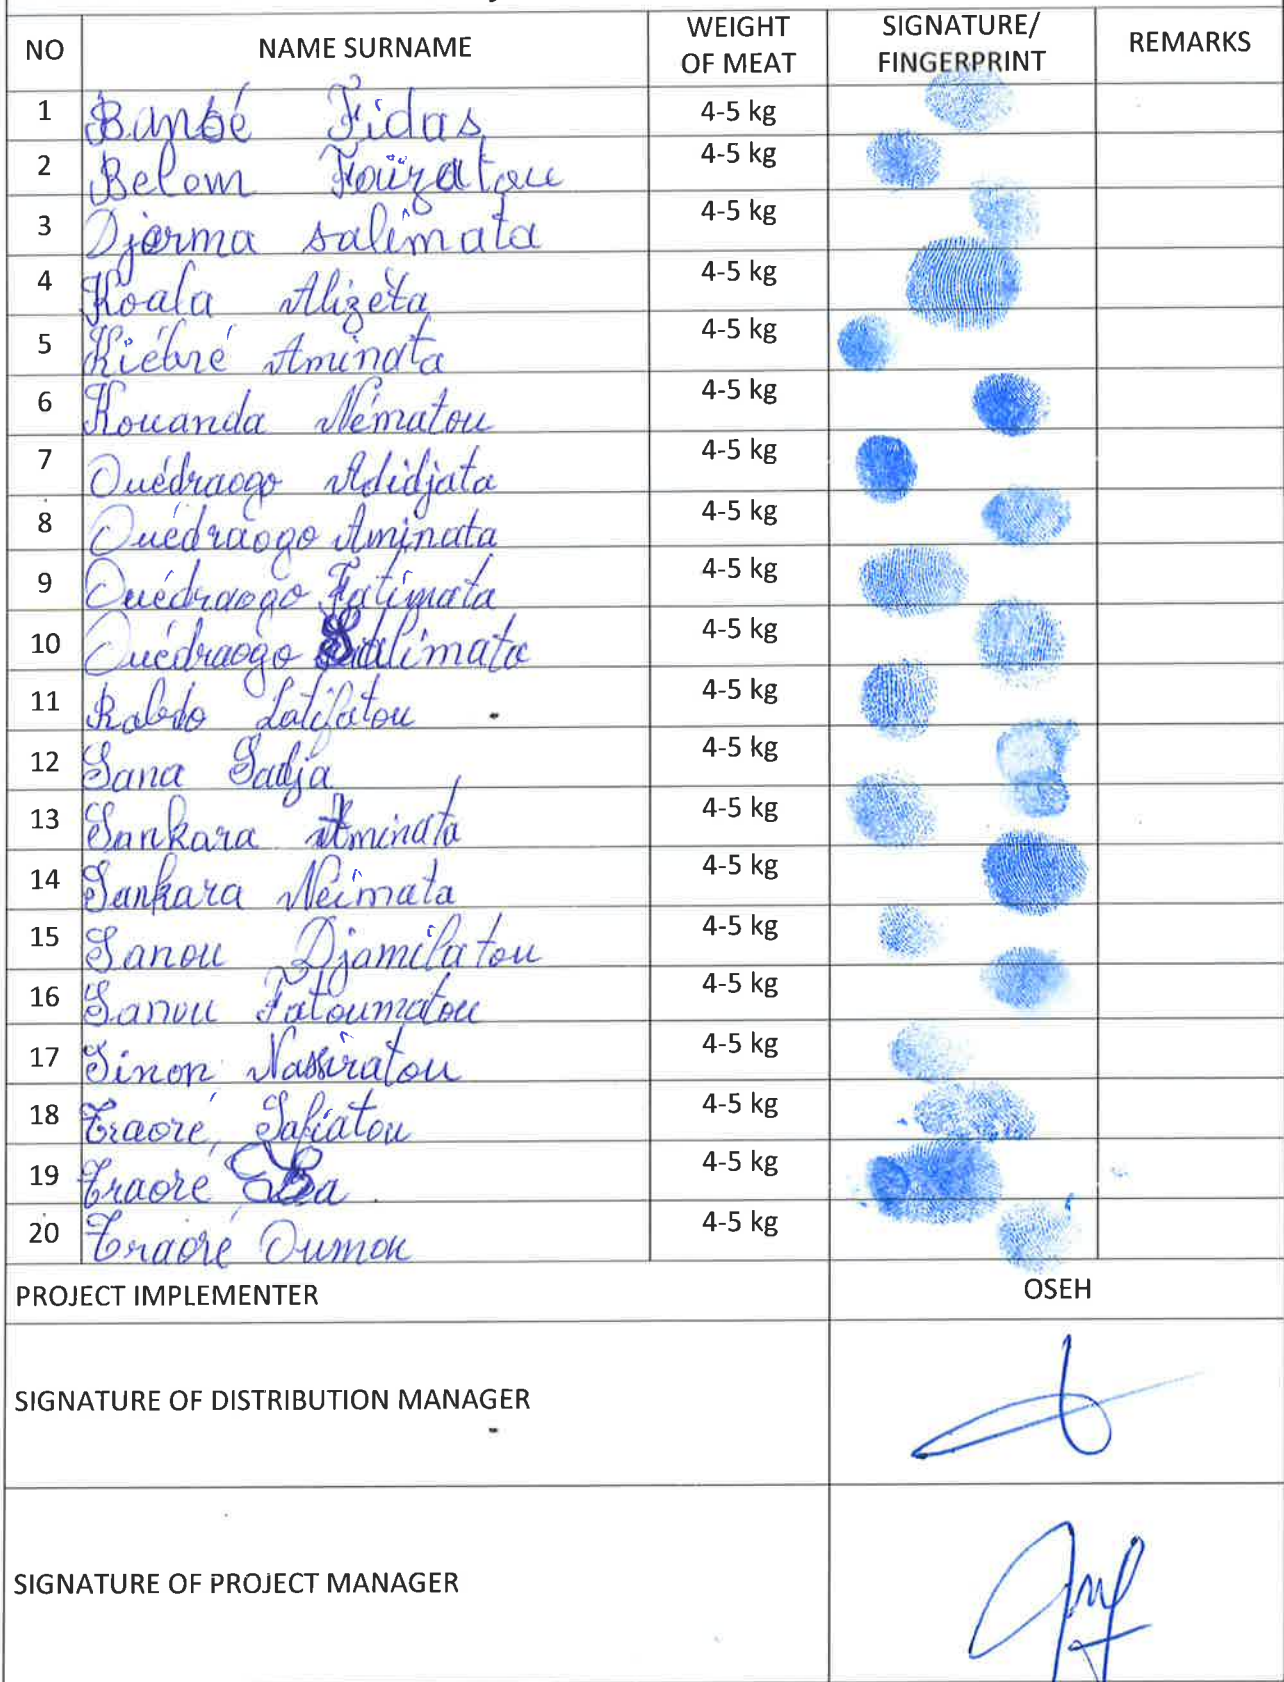 NO NAME SURNAME WEIGHT OF MEAT SIGNATURE/ FINGERPRINT REMARKS
1 Banbé Fidas 4-5 kg
2 Belem Fouzatou 4-5 kg
3 Djerma Salimata 4-5 kg
4 Koala Alizèta 4-5 kg
5 Kiébré Aminata 4-5 kg
6 Kouanda Nématou 4-5 kg
7 Ouédraogo Adidjata 4-5 kg
8 Ouédraogo Aminata 4-5 kg
9 Ouédraogo Fatimata 4-5 kg
10 Ouédraogo Salimata 4-5 kg
11 Rabdo Latifatou 4-5 kg
12 Sana Sadja 4-5 kg
13 Sankara Aminata 4-5 kg
14 Sankara Neimata 4-5 kg
15 Sanou Djamilatou 4-5 kg
16 Sanou Fatoumatou 4-5 kg
17 Sinon Nassiratou 4-5 kg
18 Traoré Safiatou 4-5 kg
19 Traoré 4-5 kg
20 Traoré Oumou 4-5 kg
PROJECT IMPLEMENTER OSEH
SIGNATURE OF DISTRIBUTION MANAGER
SIGNATURE OF PROJECT MANAGER